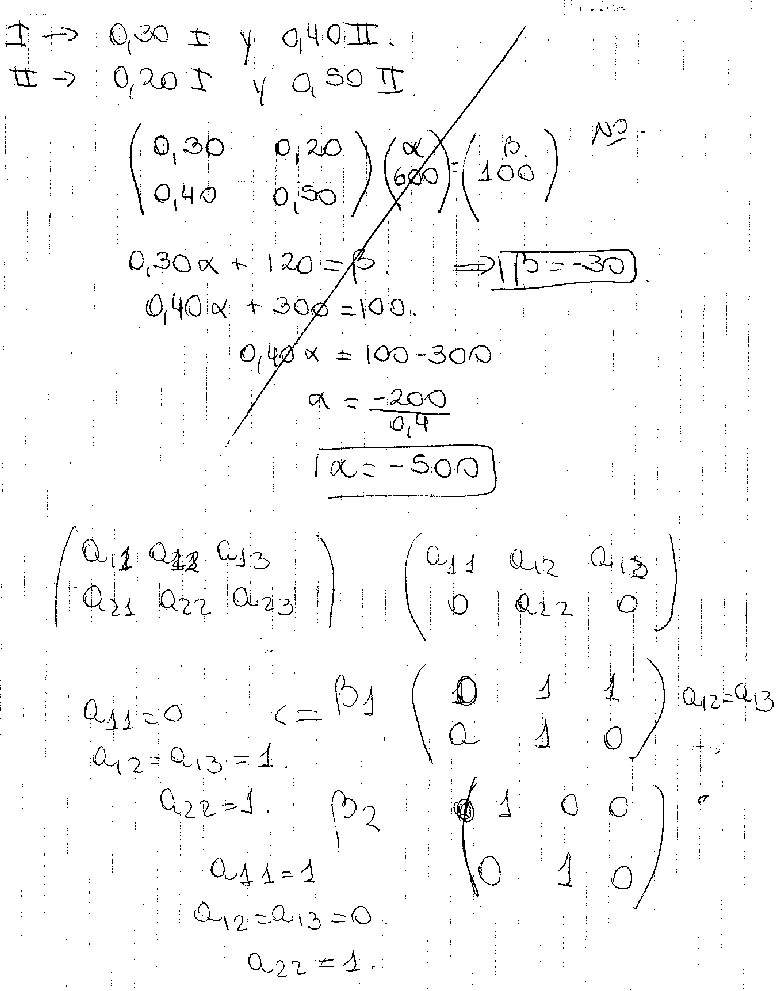 I → 0,30 I y 0,40 II.
II → 0,20 I y 0,50 II.
( 0,30 0,20 ) ( α ) = ( β ) NO.
( 0,40 0,50 ) ( 600 ) ( 100 )
0,30α + 120 = β. ⇒ β = -30.
0,40α + 300 = 100.
0,40α = 100-300
α = -200/0,4
α = -500
( a11 a12 a13 ) ( a11 a12 a13 )
( a21 a22 a23 ) ( 0 a22 0 )
a11=0 <= β1 ( 0 1 1 ) a12=a13
a12=a13=1. ( 0 1 0 )
a22=1. β2 ( 1 0 0 )
a11=1 ( 0 1 0 )
a12=a13=0
a22=1.